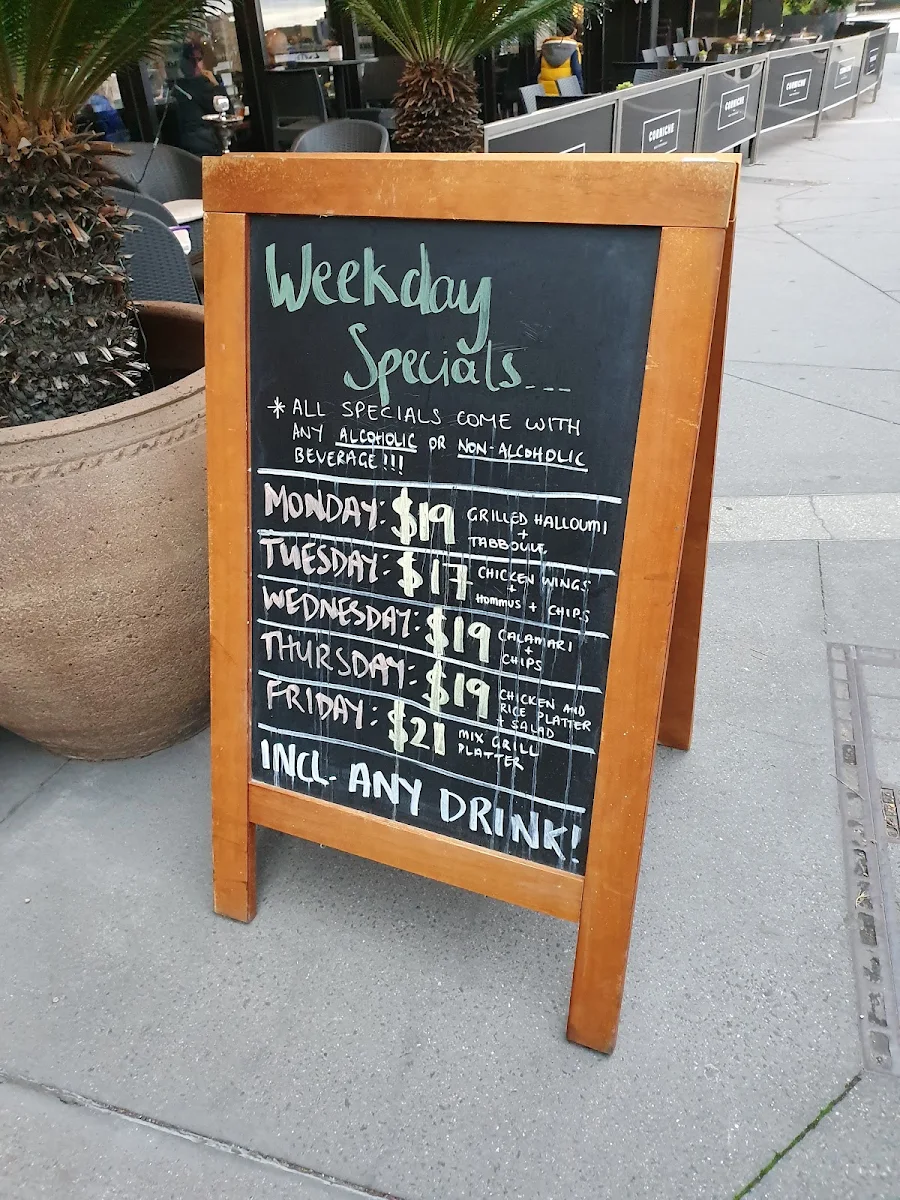 Weekday
Specials...
* ALL SPECIALS COME WITH
ANY ALCOHOLIC OR NON-ALCOHOLIC
BEVERAGE!!!
MONDAY: $19 GRILLED HALLOUMI
+
TABBOULE
TUESDAY: $17 CHICKEN WINGS
+
HOMMUS + CHIPS
WEDNESDAY: $19 CALAMARI
+
CHIPS
THURSDAY: $19 CHICKEN AND
RICE PLATTER
+ SALAD
FRIDAY: $21 MIX GRILL
PLATTER
INCL. ANY DRINK!
CORNICHE
CORNICHE
CORNICHE